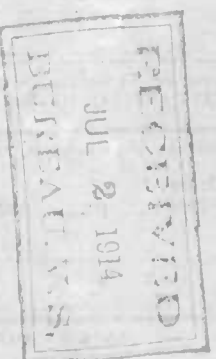 RECEIVED
JUL 2 1914
BUREAU